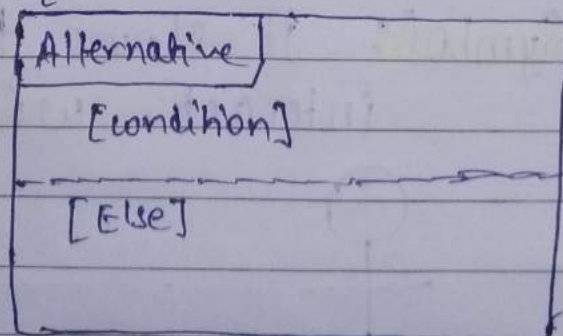 Alternative
[condition]
[Else]